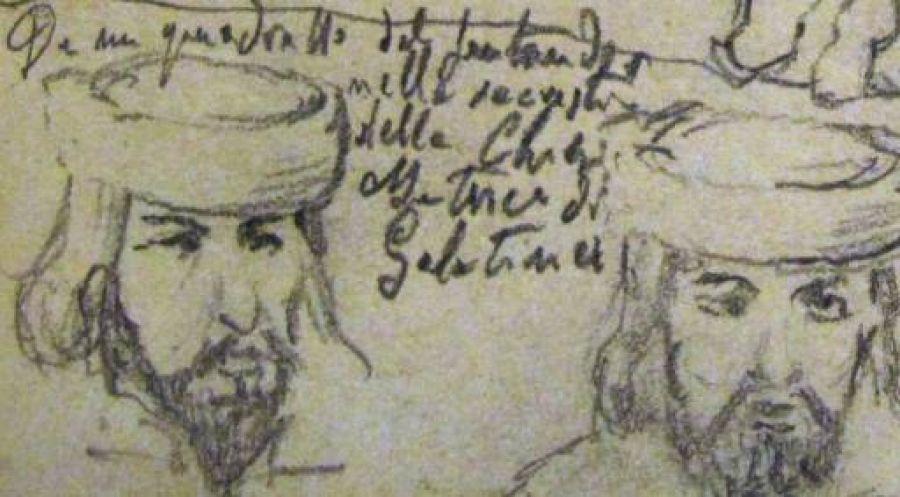 Da un quadretto del trecento
nella sacrestia
della Chiesa
Matrice di
Galatina